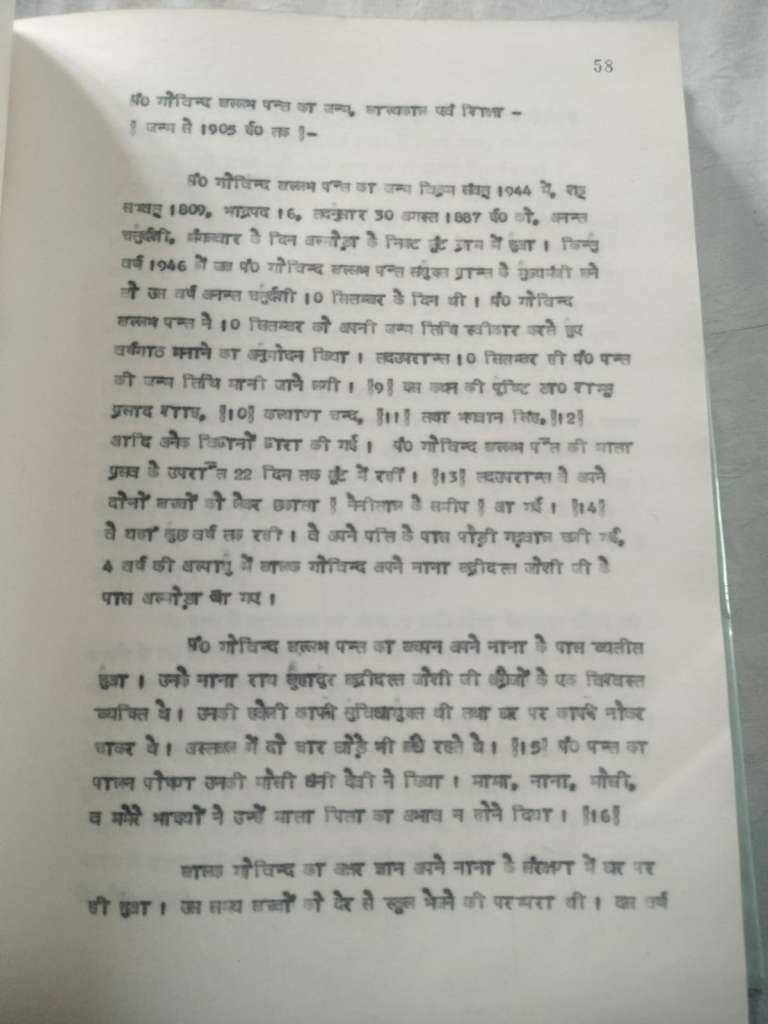 58
पं0 गोविन्द बल्लभ पन्त का जन्म, बाल्यकाल एवं शिक्षा -
[ जन्म से 1905 ई0 तक ]-
पं0 गोविन्द बल्लभ पन्त का जन्म विक्रम संवत् 1944 में, शक्
सम्वत् 1809, भाद्रपद 16, तदनुसार 30 अगस्त 1887 ई0 को, अनन्त
चतुर्दशी, मंगलवार के दिन अल्मोड़ा के निकट खूंट ग्राम में हुआ । किन्तु
वर्ष 1946 में जब पं0 गोविन्द बल्लभ पन्त संयुक्त प्रान्त के मुख्यमंत्री बने
तो उस वर्ष अनन्त चतुर्दशी 10 सितम्बर के दिन थी । पं0 गोविन्द
बल्लभ पन्त ने 10 सितम्बर को अपनी जन्म तिथि स्वीकार करते हुए
वर्षगांठ मनाने का अनुमोदन किया । तदउपरान्त 10 सितम्बर ही पं0 पन्त
की जन्म तिथि मानी जाने लगी । [9] इस कथन की पुष्टि डा0 शम्भू
प्रसाद शाह, [10] कल्याण चन्द, [11] तथा भगवान सिंह, [12]
आदि अनेक विद्वानों द्वारा की गई । पं0 गोविन्द बल्लभ पंत की माता
प्रसव के उपरांत 22 दिन तक खूंट में रहीं । [13] तदउपरान्त वे अपने
दोनों बच्चों को लेकर छखाता [ नैनीताल के समीप ] आ गई । [14]
वे यहां कुछ वर्ष तक रही । वे अपने पति के पास पौड़ी गढ़वाल चली गई,
4 वर्ष की अल्पायु में बालक गोविन्द अपने नाना बद्रीदत्त जोशी जी के
पास अल्मोड़ा आ गए ।
पं0 गोविन्द बल्लभ पन्त का बचपन अपने नाना के पास व्यतीत
हुआ । उनके नाना राय बहादुर बद्रीदत्त जोशी जी अंग्रेजों के एक विश्वस्त
व्यक्ति थे । उनकी हवेली काफी सुविधायुक्त थी तथा घर पर काफी नौकर
चाकर थे । अस्तबल में दो चार घोड़े भी बंधे रहते थे । [15] पं0 पन्त का
पालन पोषण उनकी मौसी धनी देवी ने किया । मामा, नाना, मौसी,
व ममेरे भाइयों ने उन्हें माता पिता का अभाव न होने दिया । [16]
बालक गोविन्द का अक्षर ज्ञान अपने नाना के संरक्षण में घर पर
ही हुआ । उस समय बच्चों को देर से स्कूल भेजने की परम्परा थी । दस वर्ष